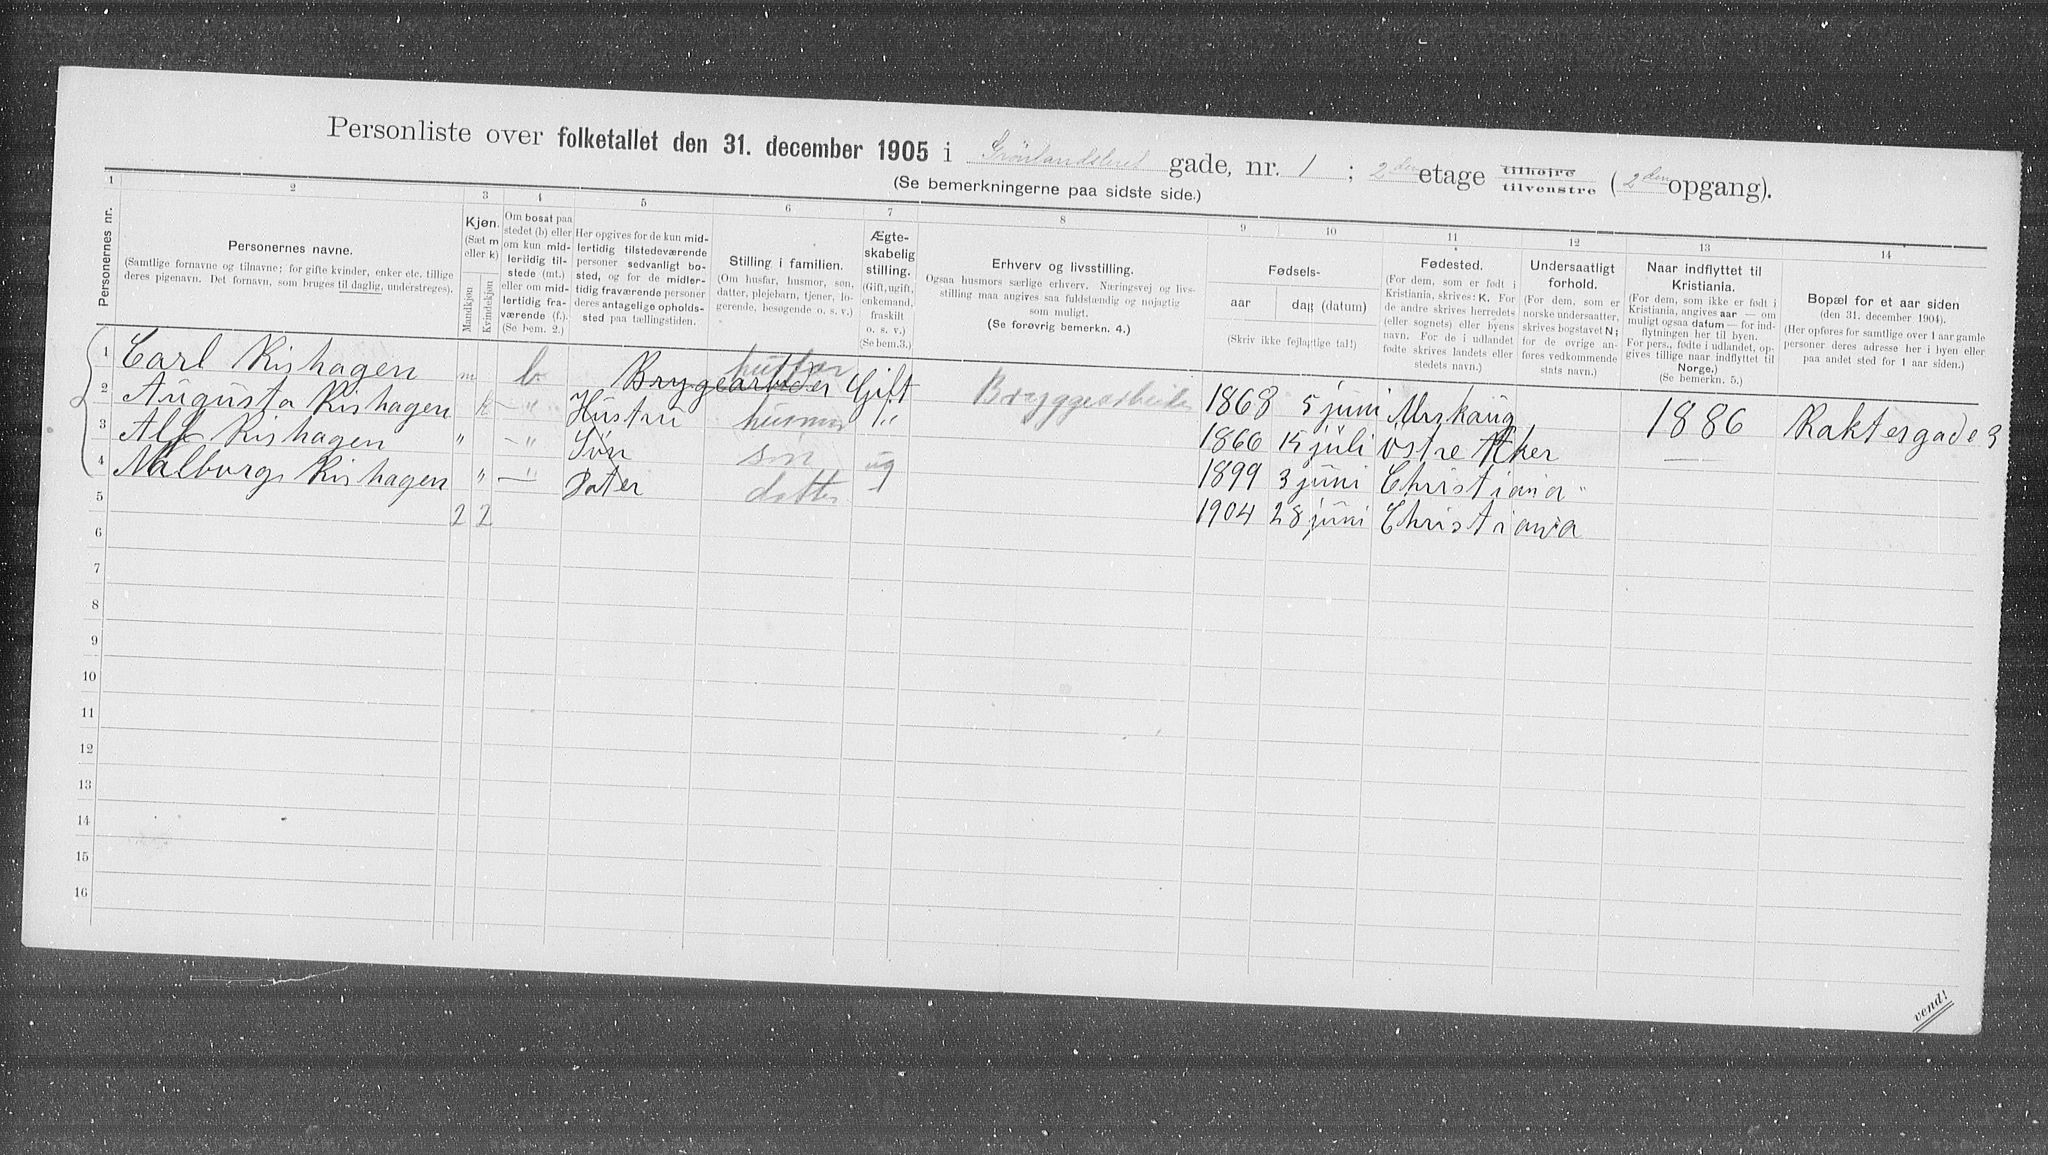 Personliste over folketallet den 31. december 1905 i Grönlandsleret gade, nr. 1 ; 2den etage tilhøjre tilvenstre (2den opgang).
(Se bemerkningerne paa sidste side.)
1 2 3 4 5 6 7 8 9 10 11 12 13 14
Personernes nr.
Personernes navne.
(Samtlige fornavne og tilnavne; for gifte kvinder, enker etc. tillige
deres pigenavn. Det fornavn, som bruges til daglig, understreges).
Kjøn.
(Sæt m
eller k)
Mandkjøn
Kvindekjøn
Om bosat paa
stedet (b) eller
om kun mid-
lertidig til-
stede (mt.)
eller om mid-
lertidig fra-
værende (f.).
(Se bem. 2.)
Her opgives for de kun mid-
lertidig tilstedeværende
personer sedvanligt bo-
sted, og for de midler-
tidig fraværende personer
deres antagelige opholds-
sted paa tællingstiden.
Stilling i familien.
(Om husfar, husmor, søn,
datter, plejebarn, tjener, lo-
gerende, besøgende o. s. v.)
Ægte-
skabelig
stilling.
(Gift, ugift,
enkemand,
fraskilt
o. s. v.)
(Se bem.3.)
Erhverv og livsstilling.
Ogsaa husmors særlige erhverv. Næringsvej og livs-
stilling maa angives saa fuldstændig og nøjagtig
som muligt.
(Se forøvrig bemerkn. 4.)
Fødsels-
aar
dag (datum)
(Skriv ikke fejlagtige tal!)
Fødested.
(For dem, som er født i
Kristiania, skrives: K. For
de andre skrives herredets
(eller sognets) eller byens
navn. For de i udlandet
fødte skrives landets eller
stedets navn.)
Undersaatligt
forhold.
(For dem, som er
norske undersaatter,
skrives bogstavet N;
for de øvrige an-
føres vedkommende
stats navn.)
Naar indflyttet til
Kristiania.
(For dem, som ikke er født i
Kristiania, angives aar — om
muligt ogsaa datum — for ind-
flytningen her til byen.
For pers., fødte i udlandet, op-
gives tillige naar indflyttet til
Norge.)
(Se bemerkn. 5.)
Bopæl for et aar siden
(den 31. december 1904).
(Her opføres for samtlige over 1 aar gamle
personer deres adresse her i byen eller
paa andet sted for 1 aar siden.)
1 Carl Rishagen m b. Brygearbider husfar Gift Bryggearbeider 1868 5 juni Urskaug 1886 Raktesgade 3
2 Augusta Rishagen k — " Hustru husmor " 1866 15 juli Östre Aker —
3 Alf Rishagen " — " Sön sön ug 1899 3 juni Christiania "
4 Valborg Rishagen " — " Dater datter 1904 28 juni Christiania
5 2 2
6
7
8
9
10
11
12
13
14
15
16
vend!